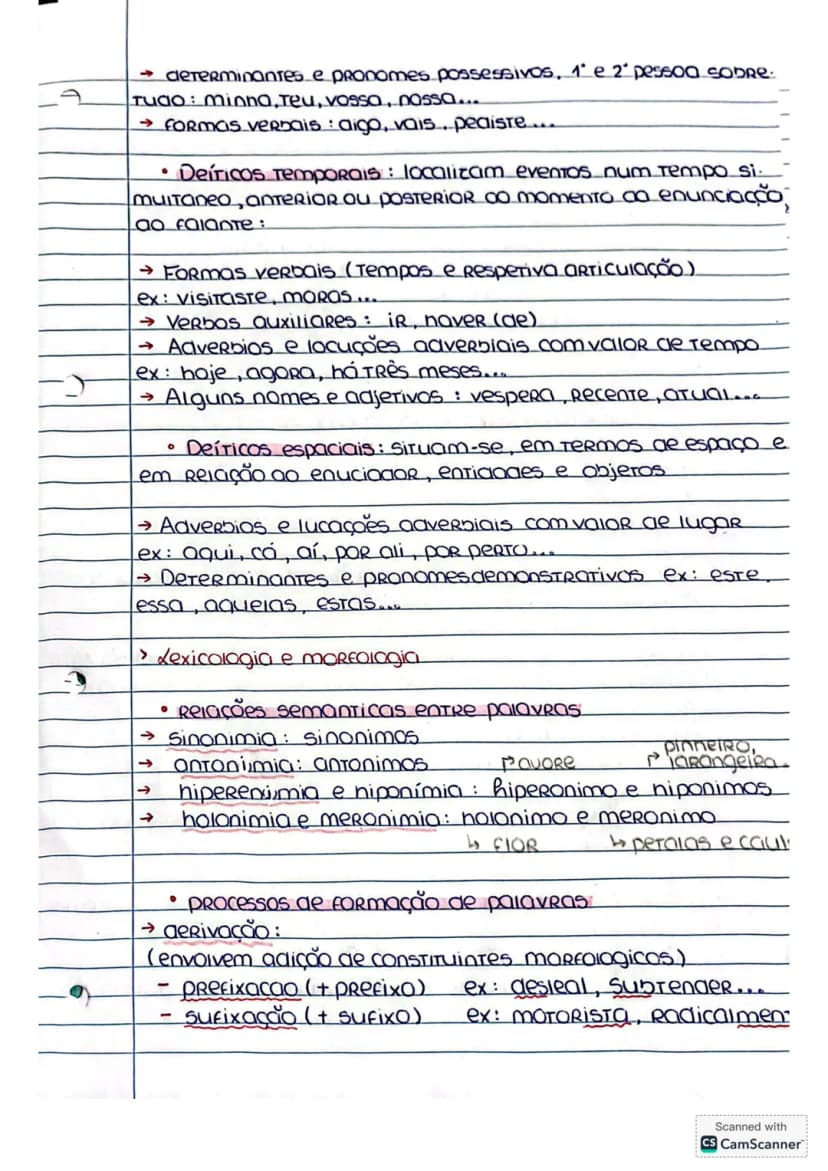 → determinantes e pronomes possessivos, 1ª e 2ª pessoa sobre-
tudo: minha, teu, vossa, nossa...
→ formas verbais: digo, vais, pediste...
• Deíticos temporais: localizam eventos num tempo si-
multaneo, anterior ou posterior ao momento da enunciação,
ao falante:
→ Formas verbais (tempos e respetiva articulação)
ex: visitaste, moras...
→ Verbos auxiliares: ir, haver (de)
→ Adverbios e locuções adverbiais com valor de tempo
ex: hoje, agora, há três meses...
→ Alguns nomes e adjetivos: vespera, recente, atual...
• Deíticos espaciais: situam-se, em termos de espaço e
em relação ao enuciador, entidades e objetos
→ Adverbios e lucações adverbiais com valor de lugar
ex: aqui, cá, aí, por ali, por perto...
→ Determinantes e pronomes demonstrativos ex: este,
essa, aquelas, estas...
> Lexicologia e morfologia
• Relações semanticas entre palavras
→ sinonimia: sinonimos
→ antonímia: antonimos
→ hiperenímia e hiponímia: hiperonimo e hiponimos
↱ avore ↱ pinheiro, larangeira.
→ holonimia e meronimia: holonimo e meronimo
↳ flor ↳ petalas e caul
• processos de formação de palavras
→ derivação:
(envolvem adição de constituintes morfologicos)
- prefixacao (+ prefixo) ex: desleal, subtender...
- sufixação (+ sufixo) ex: motorista, radicalmen
Scanned with
CS CamScanner